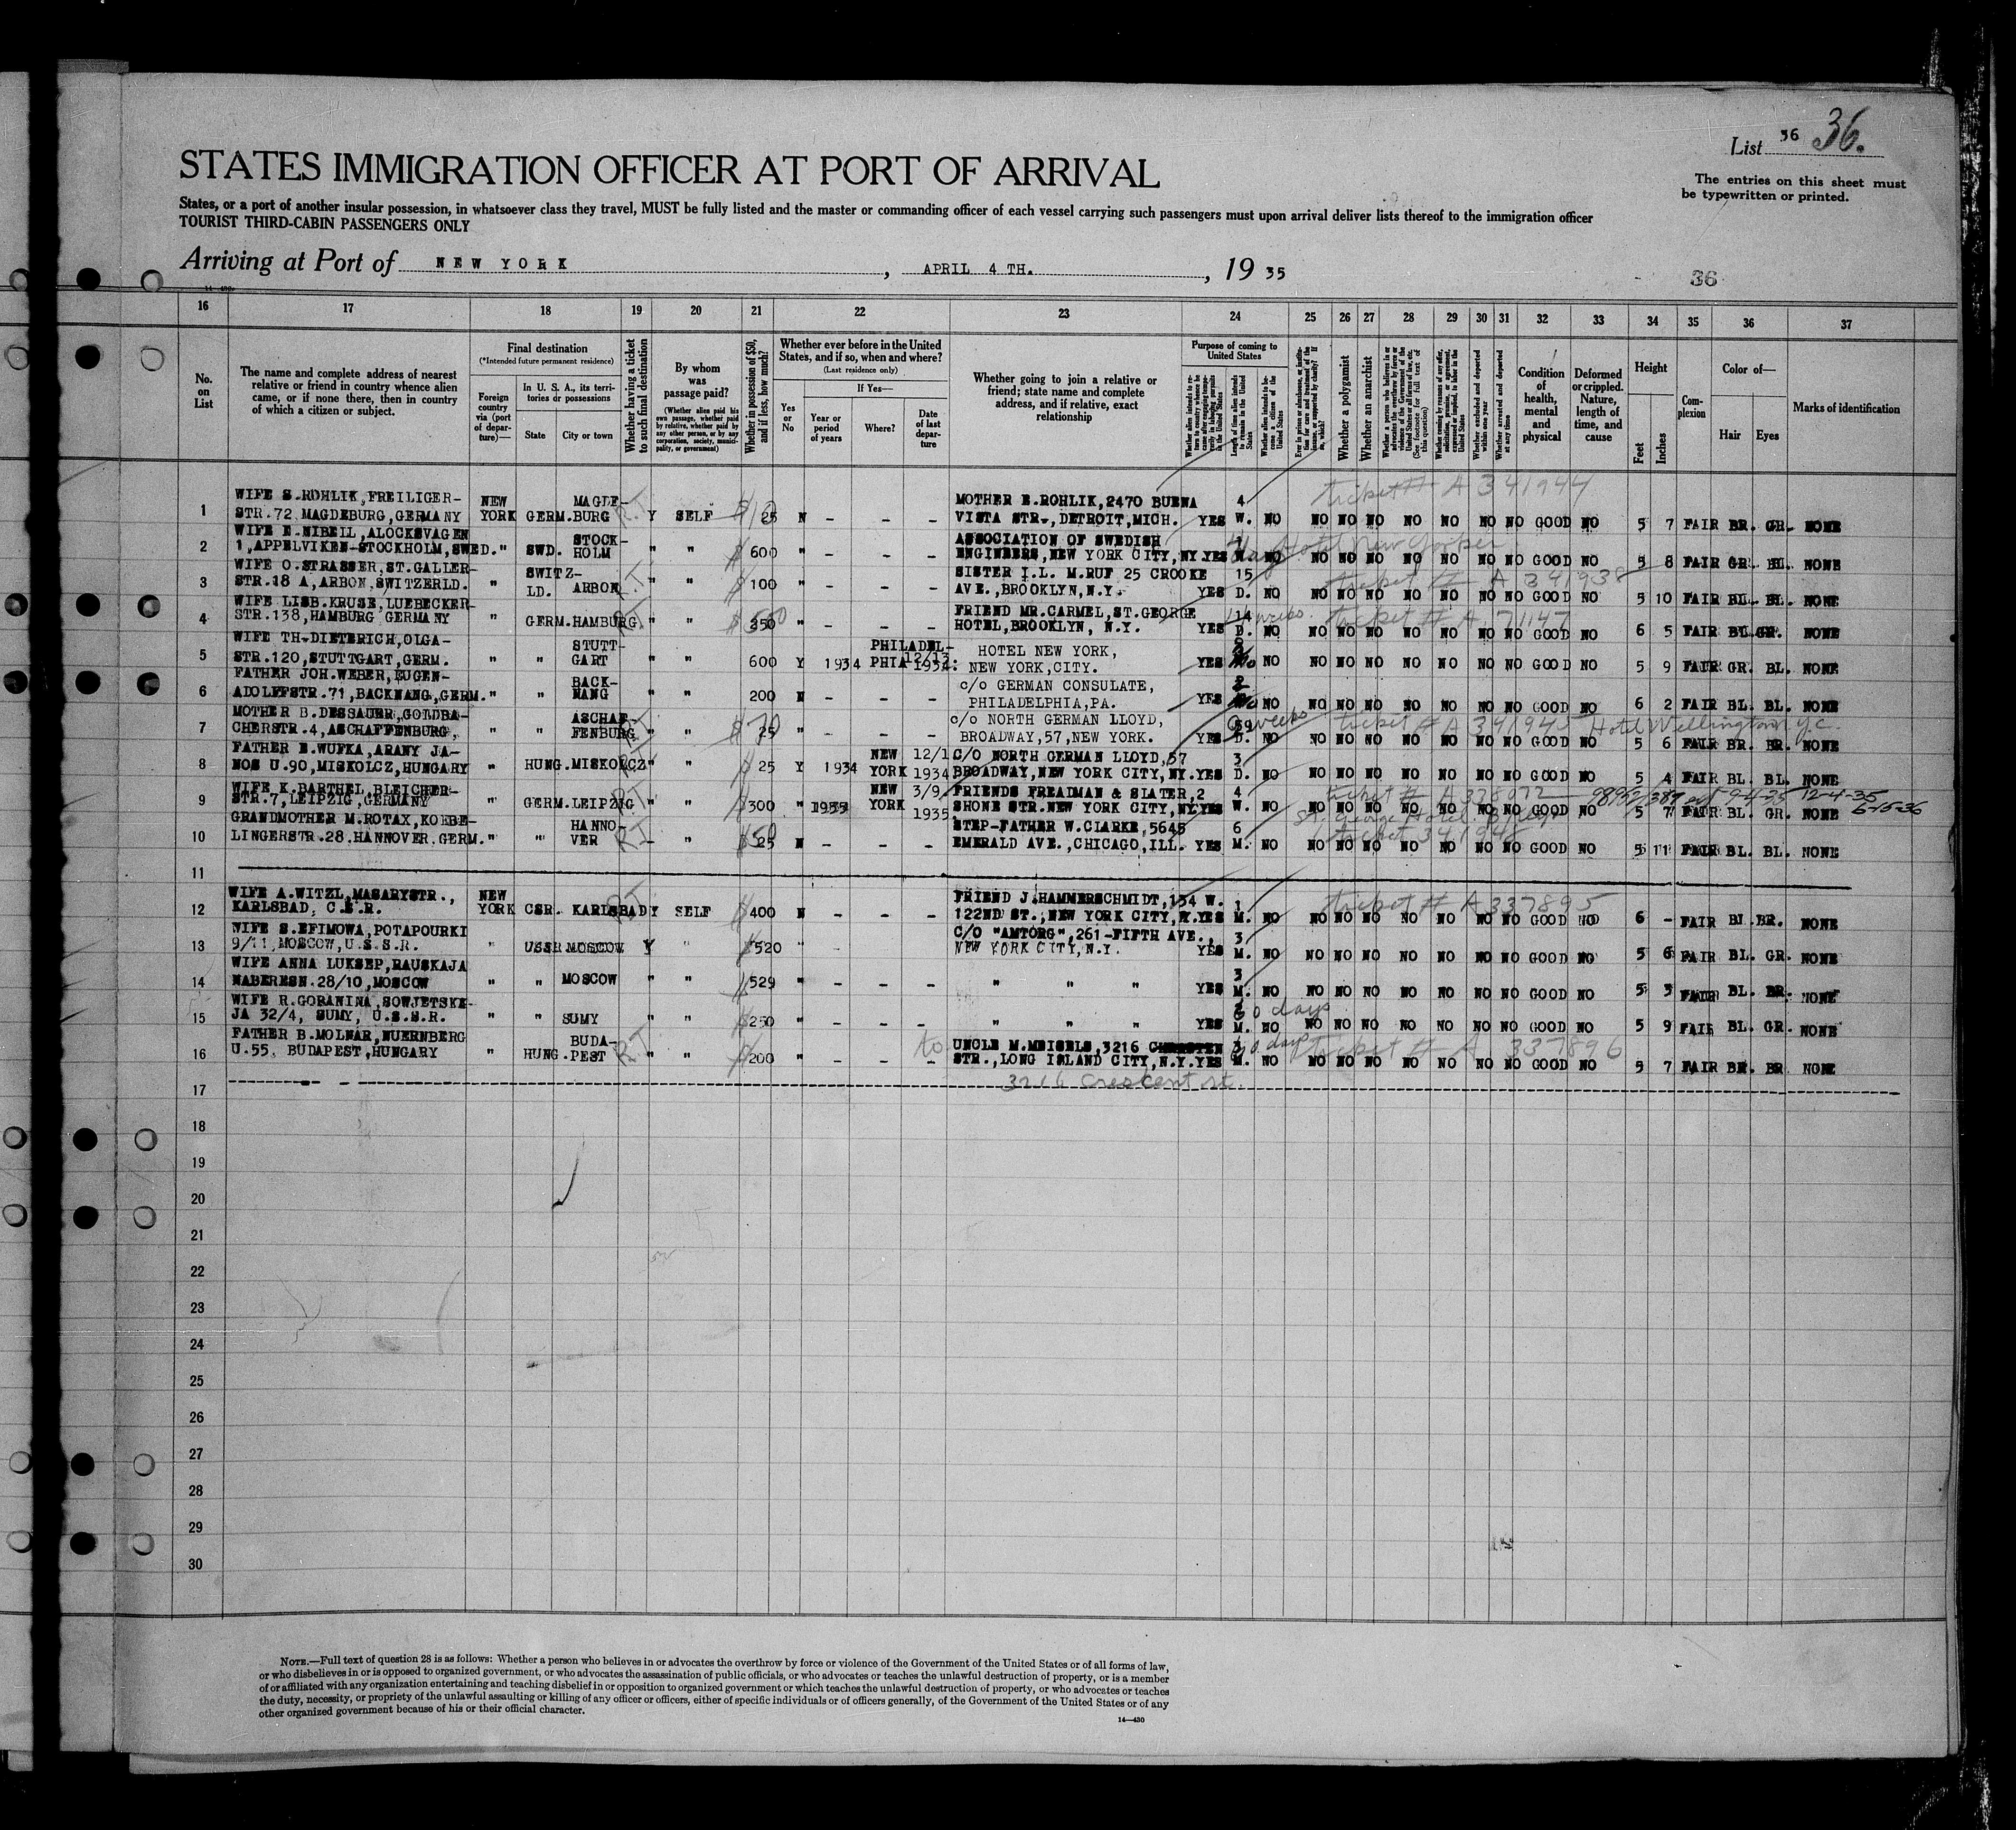 List 36 36.
The entries on this sheet must
be typewritten or printed.
STATES IMMIGRATION OFFICER AT PORT OF ARRIVAL
States, or a port of another insular possession, in whatsoever class they travel, MUST be fully listed and the master or commanding officer of each vessel carrying such passengers must upon arrival deliver lists thereof to the immigration officer
TOURIST THIRD-CABIN PASSENGERS ONLY
Arriving at Port of NEW YORK, APRIL 4 TH., 19 35
36
16 17 18 19 20 21 22 23 24 25 26 27 28 29 30 31 32 33 34 35 36 37
No. on List
The name and complete address of nearest relative or friend in country whence alien came, or if none there, then in country of which a citizen or subject.
Final destination
(*Intended future permanent residence)
Foreign country via (port of departure)—
In U. S. A., its territories or possessions
State
City or town
Whether having a ticket to such final destination
By whom was passage paid?
(Whether alien paid his own passage, whether paid by relative, whether paid by any other person, or by any corporation, society, municipality, or government)
Whether in possession of $50, and if less, how much?
Whether ever before in the United States, and if so, when and where?
(Last residence only)
Yes or No
If Yes—
Year or period of years
Where?
Date of last departure
Whether going to join a relative or friend; state name and complete address, and if relative, exact relationship
Purpose of coming to United States
Length of time alien intends to remain in the United States
Whether alien intends to become a citizen of the United States
Whether a polygamist
Whether an anarchist
(See footnote for full text of this question)
Whether excluded and deported within one year
Whether arrested and deported at any time
Condition of health, mental and physical
Deformed or crippled. Nature, length of time, and cause
Height
Feet
Inches
Complexion
Color of—
Hair
Eyes
Marks of identification
ticket # A 341944
1 WIFE S.ROHLIK,FREILIGER-
STR.72 MAGDEBURG,GERMANY NEW YORK GERM. MAGDE-BURG Y SELF 25 N - - - MOTHER E.ROHLIK,2470 BUENA
VISTA STR-,DETROIT,MICH. YES 4 W. NO NO NO NO NO NO NO NO GOOD NO 5 7 FAIR BR. GR. NONE
2 WIFE E.NIBELL,ALOCKSVAGEN
1,APPELVIKEN-STOCKHOLM,SWED. " SWD. STOCK-HOLM " " 600 " - - - ASSOCIATION OF SWEDISH
ENGINEERS,NEW YORK CITY,NY YES NO NO NO NO NO NO NO NO GOOD NO 5 8 FAIR GR. BL. NONE
Hotel New Yorker
3 WIFE O.STRASSER,ST.GALLER-
STR.18 A,ARBON,SWITZERLD. " SWITZ-LD. ARBON " " 100 " - - - SISTER I.L. M.RUF 25 CROOKE
AVE.,BROOKLYN,N.Y. YES 15 D. NO NO NO NO NO NO NO NO GOOD NO 5 10 FAIR BL. BL. NONE
ticket # A 341938
4 WIFE LISB.KRUSE,LUEBECKER-
STR.138,HAMBURG GERMANY " GERM. HAMBURG " " 350 " - - - FRIEND MR.CARMEL,ST.GEORGE
HOTEL,BROOKLYN, N.Y. YES 14 D. NO NO NO NO NO NO NO NO GOOD NO 6 5 FAIR BL. GR. NONE
ticket # A 71147
5 WIFE TH-DIETERICH,OLGA-
STR.120,STUTTGART,GERM. " " STUTT-GART " " 600 Y 1934 PHILADEL-PHIA 12/13 1934: HOTEL NEW YORK,
NEW YORK,CITY. YES NO NO NO NO NO NO NO NO GOOD NO 5 9 FAIR GR. BL. NONE
6 FATHER JOH.WEBER,EUGEN-
ADOLFFSTR.71,BACKNANG,GERM. " " BACK-NANG " " 200 N - - - c/o GERMAN CONSULATE,
PHILADELPHIA,PA. YES 2 NO NO NO NO NO NO NO NO GOOD NO 6 2 FAIR BL. BL. NONE
7 MOTHER B.DESSAUER,GOLDBA-
CHERSTR.4,ASCHAFFENBURG, " " ASCHAF-FENBURG " " 25 " - - - c/o NORTH GERMAN LLOYD,
BROADWAY,57,NEW YORK. YES 59 D. NO NO NO NO NO NO NO NO GOOD NO 5 6 FAIR BR. BR. NONE
weeks ticket # A 341945 Hotel Wellington N.Y.C.
8 FATHER E.WUFKA,ARANY JA-
NOS U.90,MISKOLCZ,HUNGARY " HUNG. MISKOLCZ " " 25 Y 1934 NEW YORK 12/1 1934 C/O NORTH GERMAN LLOYD,57
BROADWAY,NEW YORK CITY,NY. YES 3 D. NO NO NO NO NO NO NO NO GOOD NO 5 4 FAIR BL. BL. NONE
9 WIFE K.BARTHEL,BLEICHER-
STR.7,LEIPZIG,GERMANY " GERM. LEIPZIG " " 300 " 1935 NEW YORK 3/9 1935. FRIENDS FREADMAN & SLATER,2
SHONE STR.NEW YORK CITY,NY YES 4 W. NO NO NO NO NO NO NO NO GOOD NO 5 7 FAIR BL. GR. NONE
ticket # A 328072 12-4-35 5-15-36
St. George Hotel
10 GRANDMOTHER M.ROTAX,KOEBE-
LINGERSTR.28,HANNOVER,GERM. " " HANNO-VER - " 25 N - - - STEP-FATHER W.CLARKE,5645
EMERALD AVE.,CHICAGO,ILL. YES 6 M. NO NO NO NO NO NO NO NO GOOD NO 5 11 FAIR BL. BL. NONE
ticket 341948
11
12 WIFE A.WITZL,MASARYSTR.,
KARLSBAD, C.S.R. NEW YORK CSR. KARLSBAD Y SELF 400 N - - - FRIEND J.HAMMERSCHMIDT,154 W.
122ND ST.,NEW YORK CITY,N.Y. YES 1 M. NO NO NO NO NO NO NO NO GOOD NO 6 - FAIR BL. BR. NONE
ticket # A 337895
13 WIFE S.EFIMOWA,POTAPOURKI
9/11,MOSCOW,U.S.S.R. " USSR MOSCOW Y " 520 " - - C/O "AMTORG",261-FIFTH AVE.,
NEW YORK CITY,N.Y. YES 3 M. NO NO NO NO NO NO NO NO GOOD NO 5 6 FAIR BL. GR. NONE
14 WIFE ANNA LUKSEP,RAUSKAJA
NABERESN.28/10,MOSCOW " " MOSCOW " " 529 " - - - " " " YES 3 M. NO NO NO NO NO NO NO NO GOOD NO 5 3 FAIR BL. BR. NONE
15 WIFE R.GORANINA,SOWJETSKE-
JA 32/4, SUMY, U.S.S.R. " " SUMY " " 250 " - - - " " " YES M. NO NO NO NO NO NO NO NO GOOD NO 5 9 FAIR BL. GR. NONE
60 days
16 FATHER B.MOLNAR,NUERNBERG
U.55, BUDAPEST,HUNGARY " HUNG. BUDA-PEST " " 200 " - - to UNCLE M.MEISELS,3216
STR.,LONG ISLAND CITY,N.Y. YES M. NO NO NO NO NO NO NO NO GOOD NO 5 7 FAIR BR. BR NONE
60 days ticket # A 337896
3216 Crescent st.
17
18
19
20
21
22
23
24
25
26
27
28
29
30
NOTE.—Full text of question 28 is as follows: Whether a person who believes in or advocates the overthrow by force or violence of the Government of the United States or of all forms of law,
or who disbelieves in or is opposed to organized government, or who advocates the assassination of public officials, or who advocates or teaches the unlawful destruction of property, or is a member
of or affiliated with any organization entertaining and teaching disbelief in or opposition to organized government or which teaches the unlawful destruction of property, or who advocates or teaches
the duty, necessity, or propriety of the unlawful assaulting or killing of any officer or officers, either of specific individuals or of officers generally, of the Government of the United States or of any
other organized government because of his or their official character.
14—430